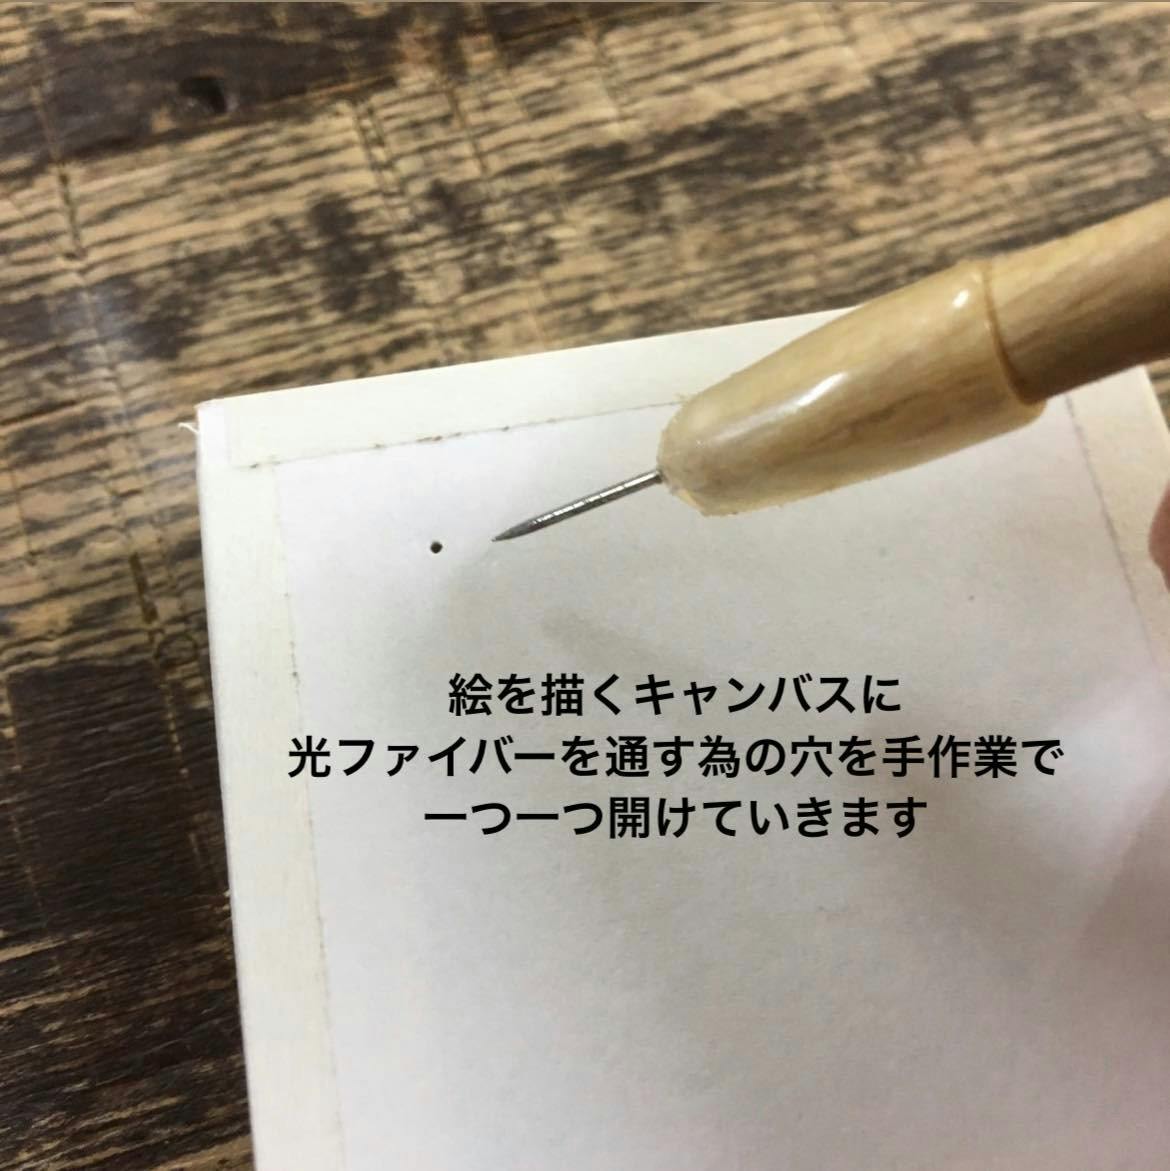 絵を描くキャンバスに
光ファイバーを通す為の穴を手作業で
一つ一つ開けていきます